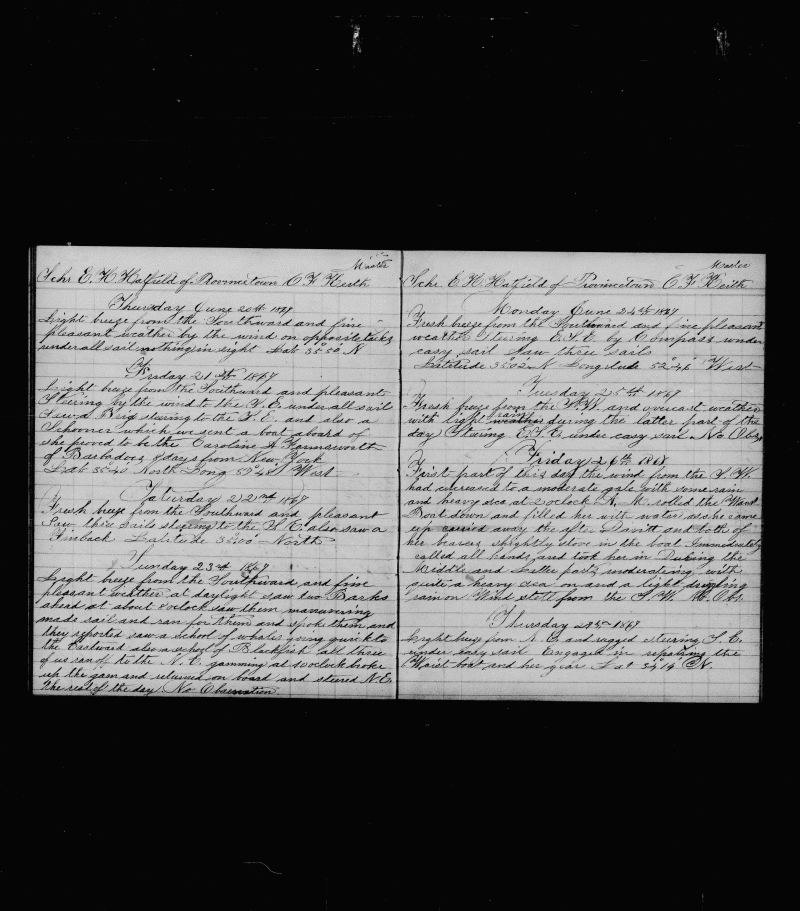 Master
Schr E. H. Hatfield of Provincetown C F Keith
Thursday June 20th 1867
Light breeze from the Southward and fine
pleasant weather by the wind on opposite tacks
under all sail nothing in sight Lat 35°50' N
Friday 21st 1867
Light breeze from the Southward and pleasant
Steering by the wind to the S.E. under all sail
Saw a Brig steering to the S.E. and also a
Schooner which we sent a boat aboard of
she proved to be the Caroline A Farnsworth
of Barbadoes 8 days from New York
Lat 35°40' North Long West
Saturday 22nd 1867
Fresh breeze from the Southward and pleasant
Saw three sails steering to the also saw a
Finback Latitude North
Sunday 23rd 1867
Light breeze from the Southward and fine
pleasant weather at daylight saw two Barks
ahead at about oclock saw them manuvring
made sail and ran for them and spoke them and
they reported saw a school of whales going quick to
the Eastward also a school of Blackfish all three
of us ran off to the N.E. gamming at 10 oclock broke
up the gam and returned on board and steered N.E.
the rest of the day No Observation
Master
Schr E H Hatfield of Provincetown C F Keith
Monday June 24th 1867
Fresh breeze from the Southward and fine pleasant
weather Steering E.S.E. by Compass under
easy sail Saw three sails
Latitude N Longitude 52°46' West
Tuesday 25th 1867
Fresh breeze from the S.W. and overcast weather
with light rain weather during the latter part of the
day Steering E.S.E. under easy sail No Obs
Friday 26th 1867
First part of this day the wind from the S.W.
had increased to a moderate gale with some rain
and heavy sea at 2 oclock A.M. rolled the Waist
Boat down and filled her with water as she came
up carried away the after Davitt and both of
her bearers slightly stove in the boat Immediately
called all hands and took her in During the
Middle and Latter part moderating with
quite a heavy sea on and a light
rain on Wind still from the S.W. No Obs
Thursday 27th 1867
Light breeze from N.E. and rugged steering S.E.
under easy sail Engaged in repairing the
Waist boat and her gear Lat 34°14' N